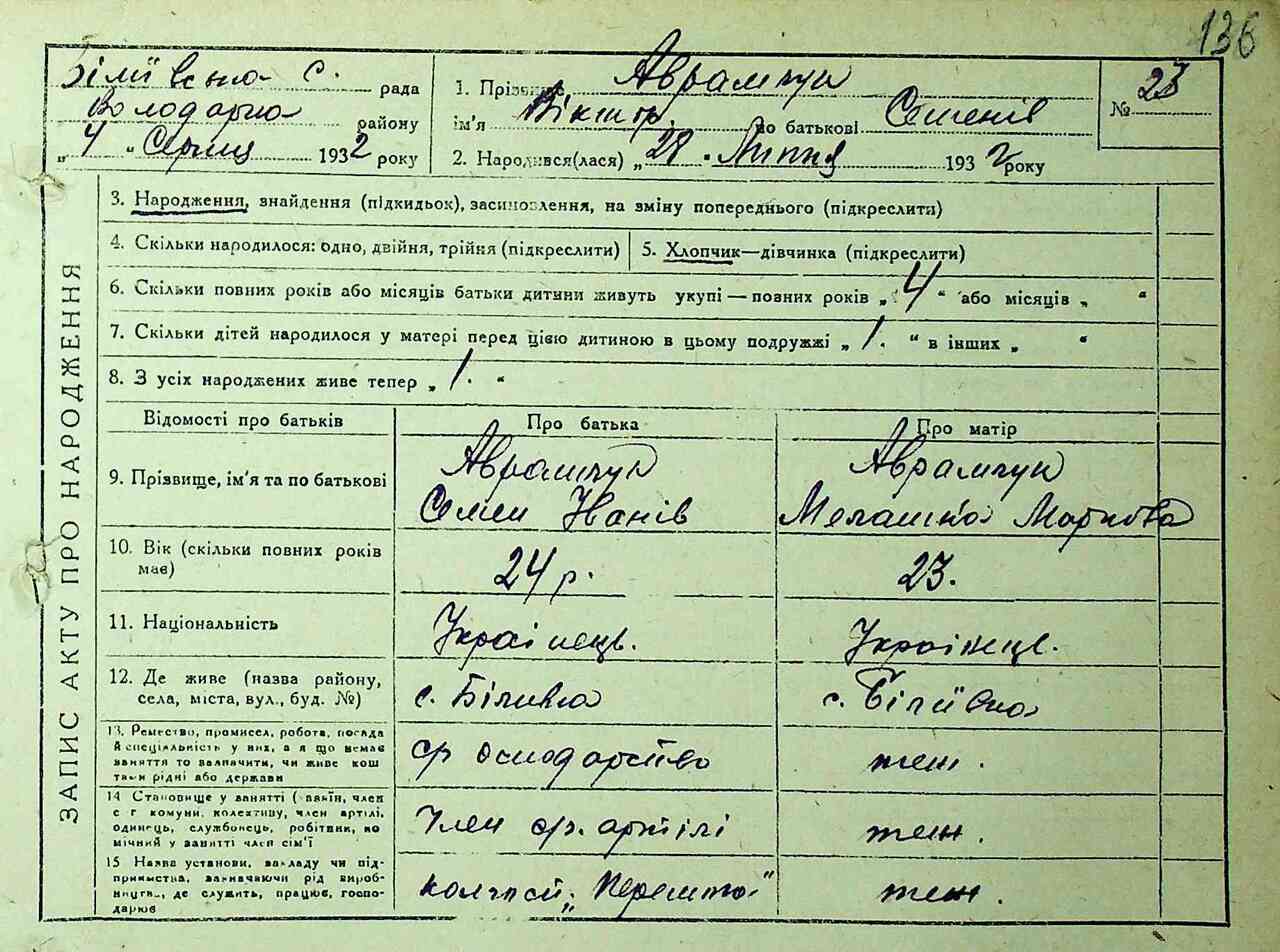 136
Біліївська с. рада
Володарка району
„ 4 " Серпця 1932 року
1. Прізвище Аврамчук
ім'я Віктор. по батькові Семенів
2. Народився(лася) „ 28 . Липня 1932 року
№ 23
ЗАПИС АКТУ ПРО НАРОДЖЕННЯ
3. Народження, знайдення (підкидьок), засиновлення, на зміну попереднього (підкреслити)
4. Скільки народилося: одно, двійня, трійня (підкреслити)
5. Хлопчик—дівчинка (підкреслити)
6. Скільки повних років або місяців батьки дитини живуть укупі — повних років „ 4 " або місяців „ "
7. Скільки дітей народилося у матері перед цією дитиною в цьому подружжі „ 1. " в інших „ "
8. З усіх народжених живе тепер „ 1. "
Відомості про батьків
Про батька
Про матір
9. Прізвище, ім'я та по батькові
Аврамчук
Семен Іванів
Аврамчук
Мелашка Маркова
10. Вік (скільки повних років
має)
24 р.
23.
11. Національність
Українець.
Українець.
12. Де живе (назва району,
села, міста, вул., буд. №)
с. Біліївка
с. Біліївка
13. Ремество, промисел, робота, посада
й спеціяльність у них, а якщо немає
заняття то зазначити, чи живе кош
тами рідні або держави
ср господарство
теж.
14 Становище у занятті ( хазяїн, член
с г комуни, колективу, член артілі,
одинець, службовець, робітник, по
мічний у занятті член сім'ї
Член с/г. артілі
теж.
15 Назва установи, закладу чи під-
приємства, зазначаючи рід вироб-
ництв., де служить, працює, госпо-
дарює
колгосп „
теж.